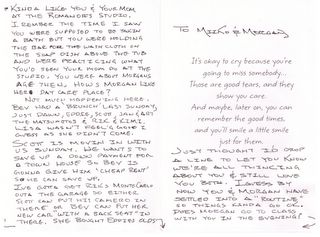 KINDA LIKE YOU & YOUR MOM
AT THE ROMANO'S STUDIO.
I REMBER THE TIME I SAW
YOU WERE SUPPOSED TO BE TAKIN
A BATH BUT YOU WERE HOLDING
THE BAR FOR THE WASH CLOTH ON
THE SOAP DISH ABOVE THE TUB
AND WERE PRACTICING WHAT
YOU'D SEEN YOUR MOM DO AT THE
STUDIO. YOU WERE ABOUT MORGANS
AGE THEN. HOW'S MORGAN LIKE
HER DAY CARE PLACE?
NOT MUCH HAPPENING HERE.
BEV HAD A BRUNCH LAST SUNDAY,
JUST DAWN, EDDIE, SCOT, JAN & ART
THE MATSUMOTOS & RIK & KIMI.
LISA WASN'T FEELIN GOOD I
GUESS AS SHE DIDN'T COME.
SCOT IS MOVIN IN WITH
US SUNDAY. HE WANT'S TO
SAVE UP A DOWN PAYMENT FOR
A TOWN HOUSE SO BEV IS
GONNA GIVE HIM "CHEAP RENT"
SO HE CAN SAVE UP.
I'VE GOTTA GET RIK'S MONTE CARLO
OUTA THE GARAGE SO EITHER
SCOT CAN PUT HIS CAMERO IN
THERE OR BEV CAN PUT HER
NEW CAR WITH A BACK SEAT IN
THERE. SHE BOUGHT EDDIES OLDS
TO MICHO & MORGAN,
It's okay to cry because you're
going to miss somebody...
Those are good tears, and they
show you care.
And maybe, later on, you can
remember the good times,
and you'll smile a little smile
just for them.
JUST THOUGHT I'D DROP
A LINE TO LET YOU KNOW
WE'RE ALL THINKING
ABOUT YOU & STILL LOVE
YOU BETH. I GUESS BY
NOW YOU & MORGAN HAVE
SETTLED INTO A "ROUTINE"
SO THINGS KINDA GO OK.
DOES MORGAN GO TO CLASS
WITH YOU IN THE EVENING?